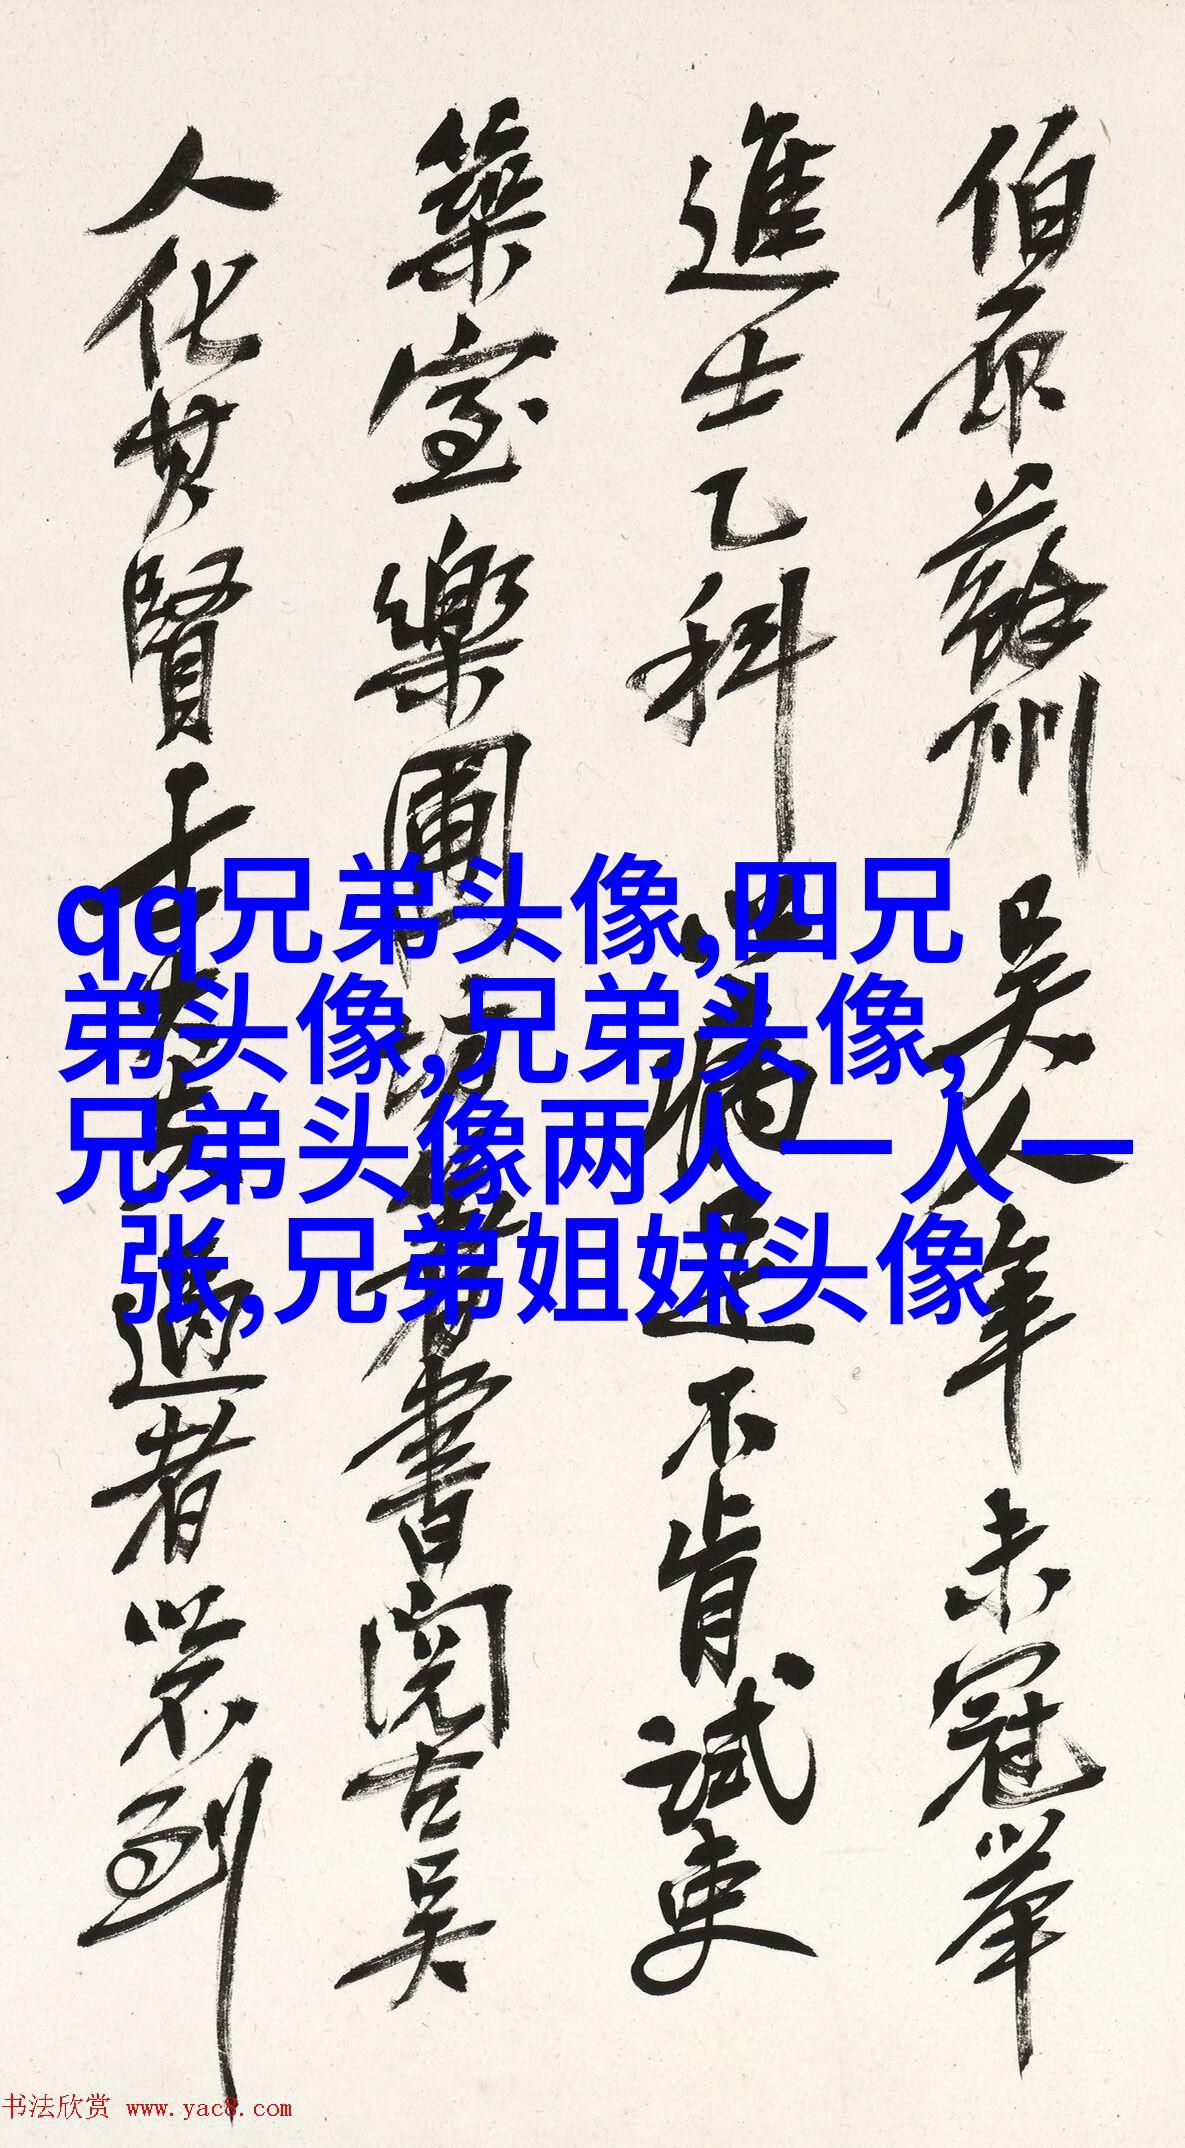 伯原蘇州吳人年未冠舉
進士乙科以病足不肯試吏
築室樂圃坊著書閱古吳
人化其賢士大夫過者以不到
qq兄弟头像,四兄
弟头像,兄弟头像,
兄弟头像两人一人一
张,兄弟姐妹头像
书法欣赏 www.yac8.com